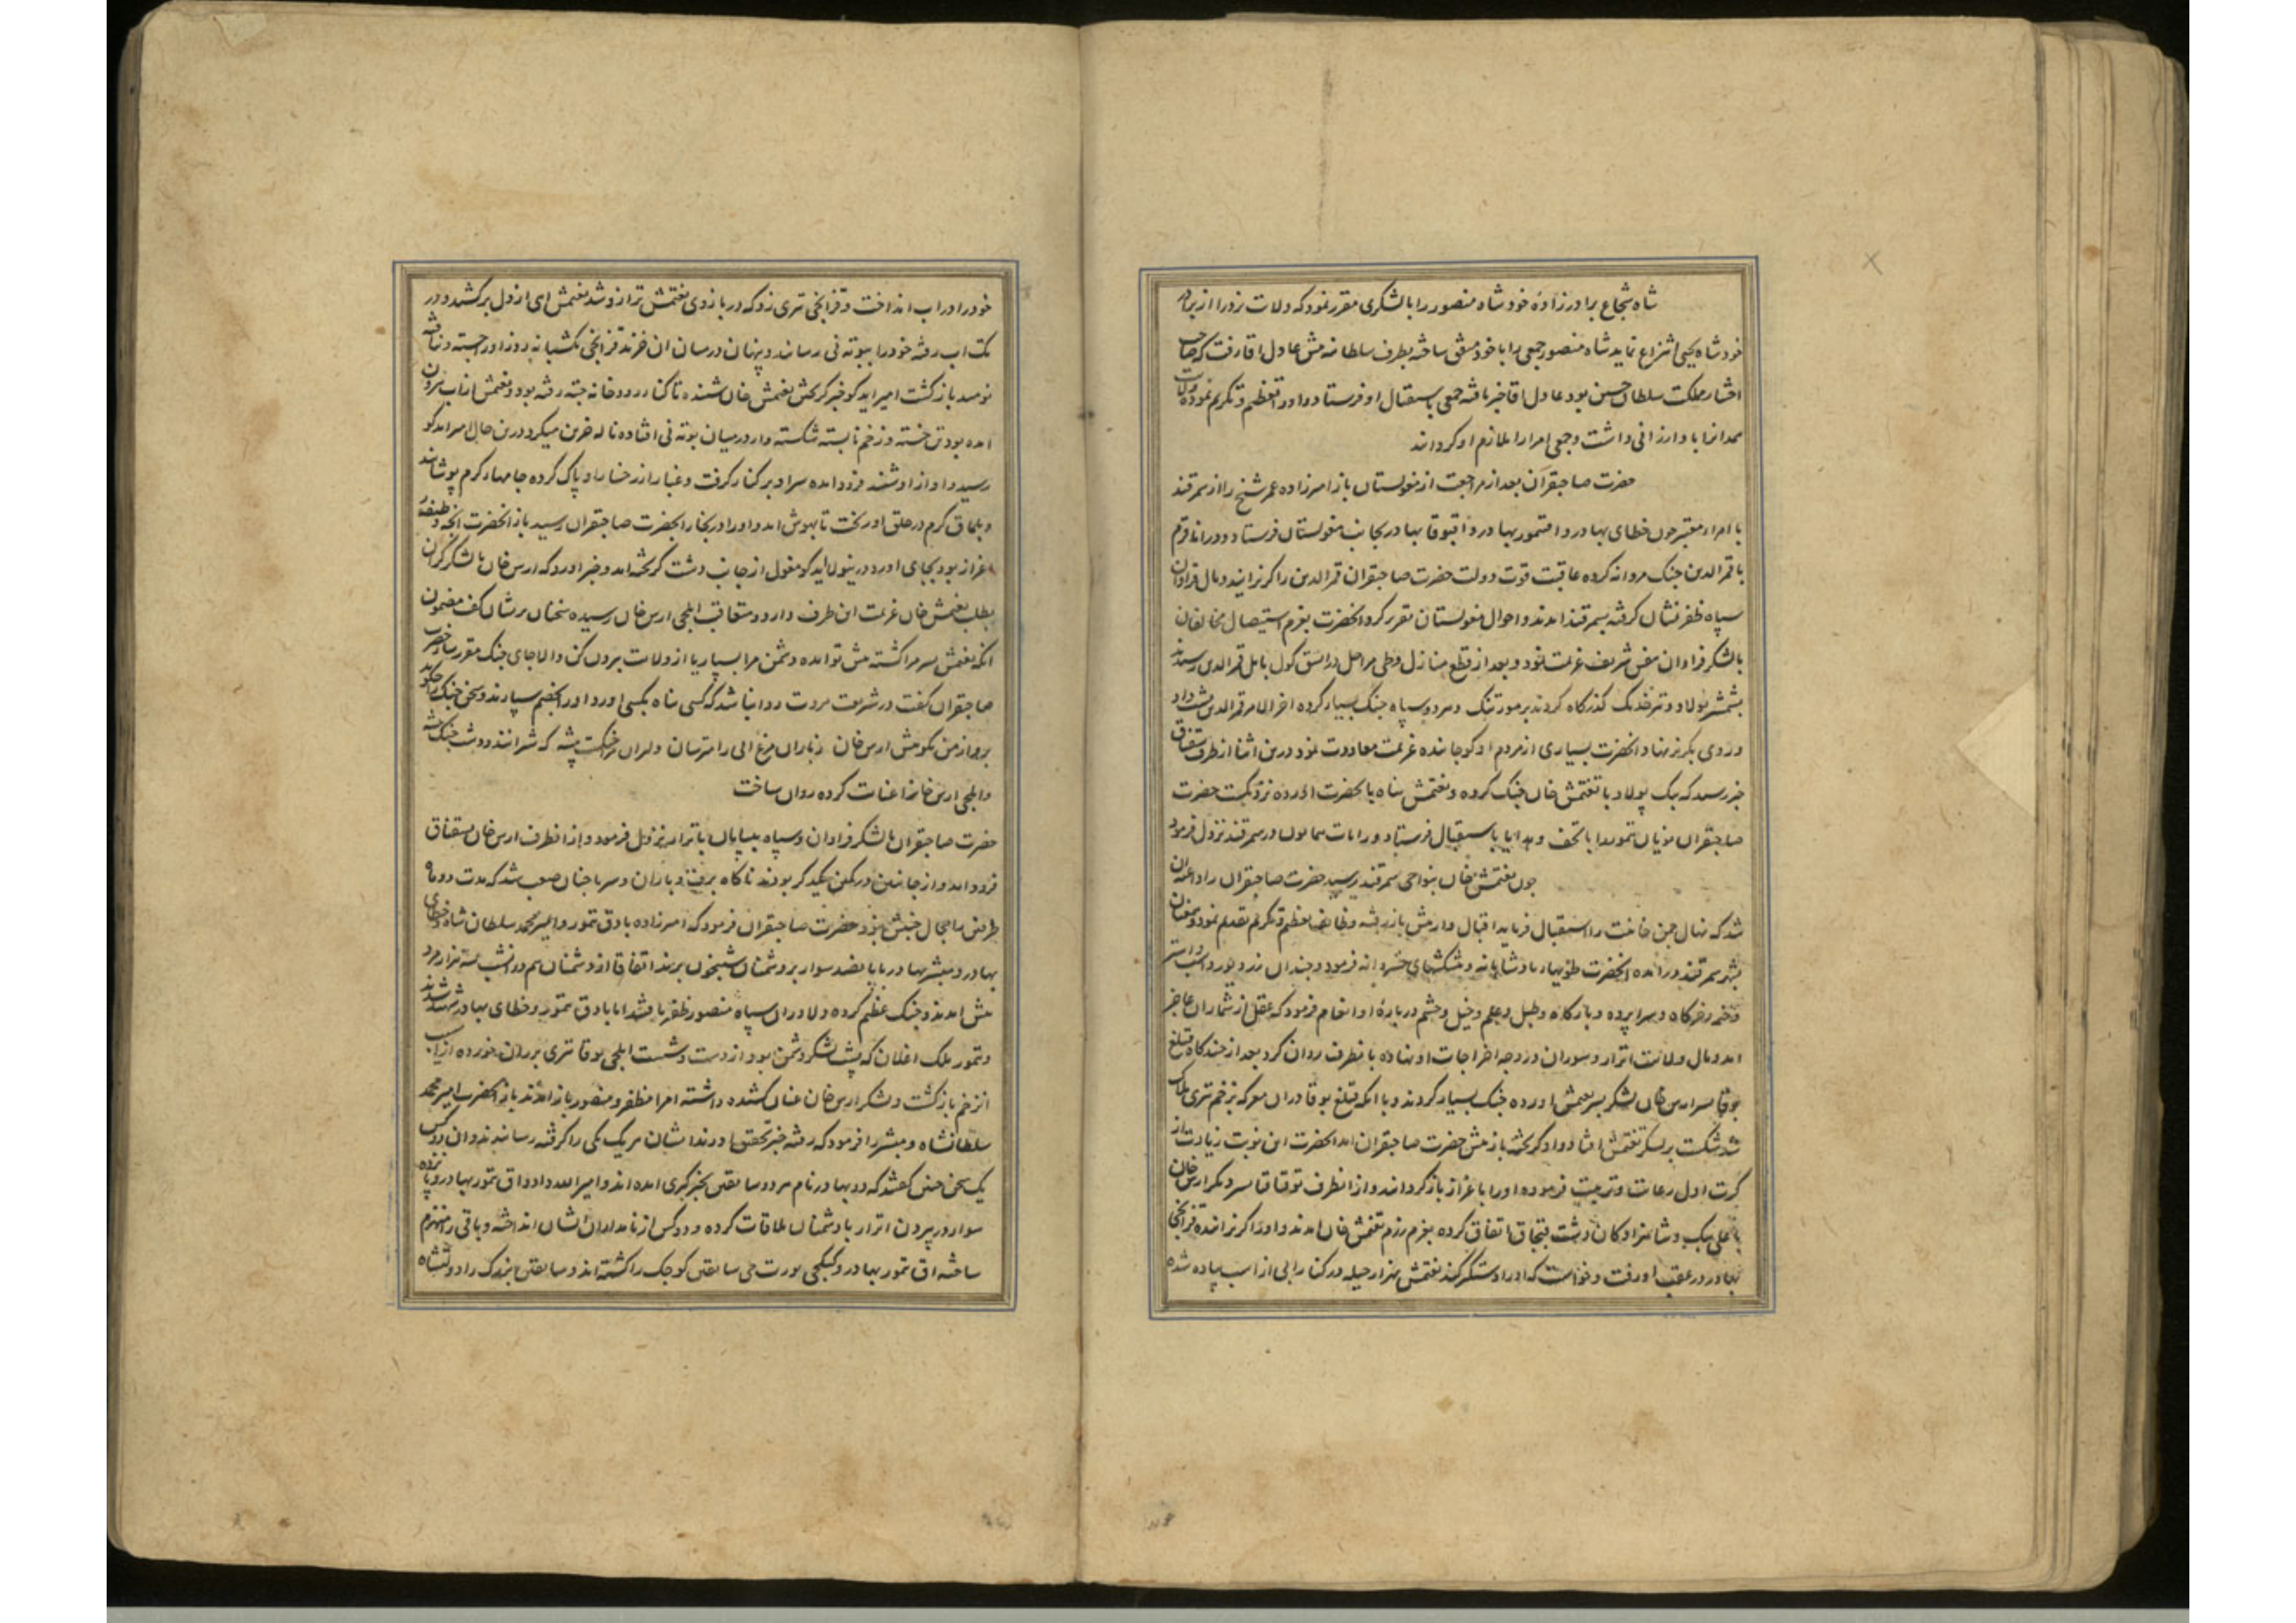 شاه شجاع برادرزاده خود شاه منصور را با لشکری مقرر نمود که ولات یزد را از برادر
خود شاه یحیی انتزاع نماید شاه منصور جمعی را با خود متفق ساخته بطرف سلطانیه پیش عادل اقا رفت که صاحب
اختیار مملکت سلطان حسین بود عادل اقا خبر یافته جمعی باستقبال او فرستاد و او را تعظیم و تکریم نموده ولایت
همدان را باو ارزانی داشت و جمعی امرا را ملازم او گردانید
حضرت صاحبقران بعد از مراجعت از مغولستان باز امیرزاده عمر شیخ را از سمرقند
با امراء معتبر چون خطای بهادر و اقتمور بهادر و اقبوقا بهادر بجانب مغولستان فرستاد و ورانا قوم
با قمرالدین جنک مردانه کرده عاقبت قوت دولت حضرت صاحبقران قمرالدین را کریزانید و مال فراوان
سپاه ظفرنشان گرفته بسمرقند امدند و احوال مغولستان تقریر کرد و انحضرت بعزم استیصال مخالفان
با لشکر فراوان بنفس شریف عزیمت نمود و بعد از قطع منازل و طی مراحل در ایسق کول بایل قمرالدین رسیدند
بشمشیر پولاد و تیر خدنک گذرگاه کردند بر مور تنک و هر دو سپاه جنک بسیار کرده اخر الامر قمرالدین پشت داد
و روی بگریز نهاد و انحضرت بسیاری از مردم او کوچانیده عزیمت معاودت نمود درین اثنا از طرف سقناق
خبر رسید که بیک پولاد با تغتمش خان جنک کرده و تغتمش پناه با حضرت اورده نزدیکست حضرت
صاحبقران مویان تمور را با تحف و هدایا باستقبال فرستاد و رایات همایون در سمرقند نزول فرمود
چون تغتمش خان بنواحی سمرقند رسید حضرت صاحبقران را داعیه ان
شد که نهال چمن خانیت را استقبال فرماید اقبال وار پیش باز رفته وظایف تعظیم و تکریم تقدیم نمود و بعنان
بشهر سمرقند در امده انحضرت طویهاء پادشاهانه و پیشکشهای خسروانه فرمود و چندان زر و زیور و اسب و استر
و خیمه و خرگاه و سراپرده و بارگاه و طبل و علم و خیل و حشم درباره او انعام فرمود که عقل از شمار ان عاجز
امد و مال ولایت اترار و سوران در وجه اخراجات او نهاده بانطرف روان کرد بعد از چندگاه قتلغ
بوقا پسر ارس خان لشکر بسر تغتمش اورده جنک بسیار کردند و با انکه قتلغ بوقا در ان معرکه بزخم تیری هلاک
شد شکست بر لشکر تغتمش افتاد و او گریخته باز پیش حضرت صاحبقران امد انحضرت این نوبت زیادت از
کرت اول رعایت و تربیت فرموده او را باعزاز باز گردانید و از انطرف توقتاقا پسر دیگر ارس خان
با علی بیک و شاهزادگان دشت قبچاق اتفاق کرده بعزم رزم تغتمش خان امدند و او را گریزانیده قزانچی
بهادر در عقب او رفت و خواست که او را دستگیر کند تغتمش بهزار حیله در کنار ابی از اسب پیاده شده
خود را در اب انداخت و قزانچی تیری زد که در بازوی تغتمش ترازو شد تغتمش اهی از دل برکشید و در
تک اب رفته خود را ببوته نی رسانید و پنهان در میان ان خزید قزانچی یکشبانه روز او را جسته و نیافته
نومید بازگشت امیر ایدکو خبر گریختن تغتمش خان شنیده تا کنار رودخانه جسته رفته بود و تغتمش از اب بیرون
امده بود تن خسته و زخم نابسته شکسته وار در میان بوته نی افتاده ناله حزین میکرد درین حال امیر ایدکو
رسید و اواز او شنید فرود امده سر او بر کنار گرفت و غبار از رخسار او پاک کرده جامهاء گرم پوشانید
و بلماق گرم در حلق او ریخت تا بهوش امد و او را در بخارا بحضرت صاحبقران رسید باز انحضرت انچه وظیفه
اعزاز بود بجای اورد و درینولا ایدکو مغول از جانب دشت گریخته امد و خبر اورد که ارس خان با لشکر گران
بطلب تغتمش خان عزیمت این طرف دارد و متعاقب ایلچی ارس خان رسیده سخنان پریشان گفت مضمون
انکه تغتمش پسر مرا کشته پیش تو امده دشمن مرا بسپار یا از ولایت بیرون کن والا جای جنک مقرر ساز حضرت
صاحبقران گفت در شریعت مروت روا نباشد که کسی پناه بکسی اورد و او را بخصم سپارند و سخن جنک را چگوید
برو از من بگو پیش ارس خان ز باران مرغ ابی را مترسان دلیران را جنگست پیشه که شیرانند و دشت جنک بیشه
و ایلچی ارس خانرا عنایت کرده روان ساخت
حضرت صاحبقران با لشکر فراوان و سپاه بیپایان باترار نزول فرمود و از انطرف ارس خان بسقناق
فرود امد و از جانبین در کمین یکدیگر بودند ناگاه برف و باران و سرما چنان صعب شد که مدت دو ماه
طرفین را مجال جنبش نبود حضرت صاحبقران فرمود که امیرزاده یادق تمور و امیر محمد سلطان شاه و خطای
بهادر و مبشر بهادر با پانصد سوار بر دشمنان شبیخون برند اتفاقا از دشمنان هم در انشب سه هزار مرد
پیش امدند و جنک عظیم کرده دلاوران سپاه منصور ظفر یافتند اما یادق تمور و خطای بهادر شهید شدند
و تمور ملک اغلان که پشت لشکر دشمن بود از دست و شست ایلچی بوقا تیری بر ران خورده از اسیب
ان زخم بازگشت و لشکر ارس خان عنان کشیده داشته امرا مظفر و منصور باز امدند باز انحضرت امیر محمد
سلطانشاه و مبشر را فرمود که رفته خبر تحقیق اورند ایشان هر یک یکی را گرفته رسانیدند و ان دو کس
یک سخن چنین گفتند که دو بهادر نام مرد و ساتقین بخبرگیری امده اند و امیر الله داد و اق تمور بهادر و پانزده
سوار در بیرون اترار با دشمنان ملاقات کرده و دو کس از نامداران نشان انداخته و باقی را منهزم
ساخته اق تمور بهادر و کبکچی یورتچی ساتقین کوچک را کشته اند و ساتقین بزرک را دولتشاه